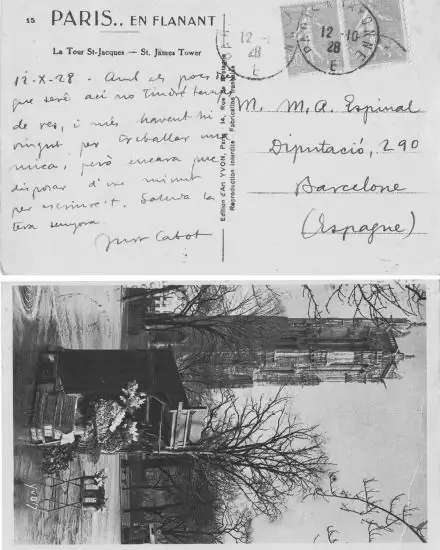 15 PARIS.. EN FLANANT
La Tour St-Jacques — St. James Tower
12-X-28. Amb els pocs dies
que seré ací no tindré temps
de res, i més havent-hi
vingut per treballar una
mica, però encara puc
disposar d'un minut
per escriure't. Saluda la
teva senyora.
Just Cabot
Edition d'Art YVON, Paris
Reproduction interdite Fabrication française
12-10
28
E
12-10
28
E
M. M.A. Espinal
Diputació, 290
Barcelone
(Espagne)
Yvon